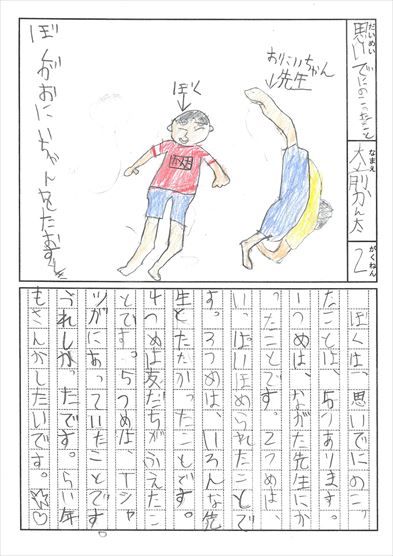 だいめい
思いでにのこったこと
なまえ
大前かん太
がくねん
2
おにいちゃん
先生
ぼく
ぼくがおにいちゃんをたおす
ぼくは、思いでにのこっ
たことは、5つあります。
1つめは、ながた先生にか
ったことです。2つめは、
いっぱいほめられたことで
す。3つめは、いろんな先
生とたたかったことです。
4つめは友だちがふえたこ
とです。5つめは、Tシャ
ツがにあっていたことです。
うれしかったです。らい年
もさんかしたいです。